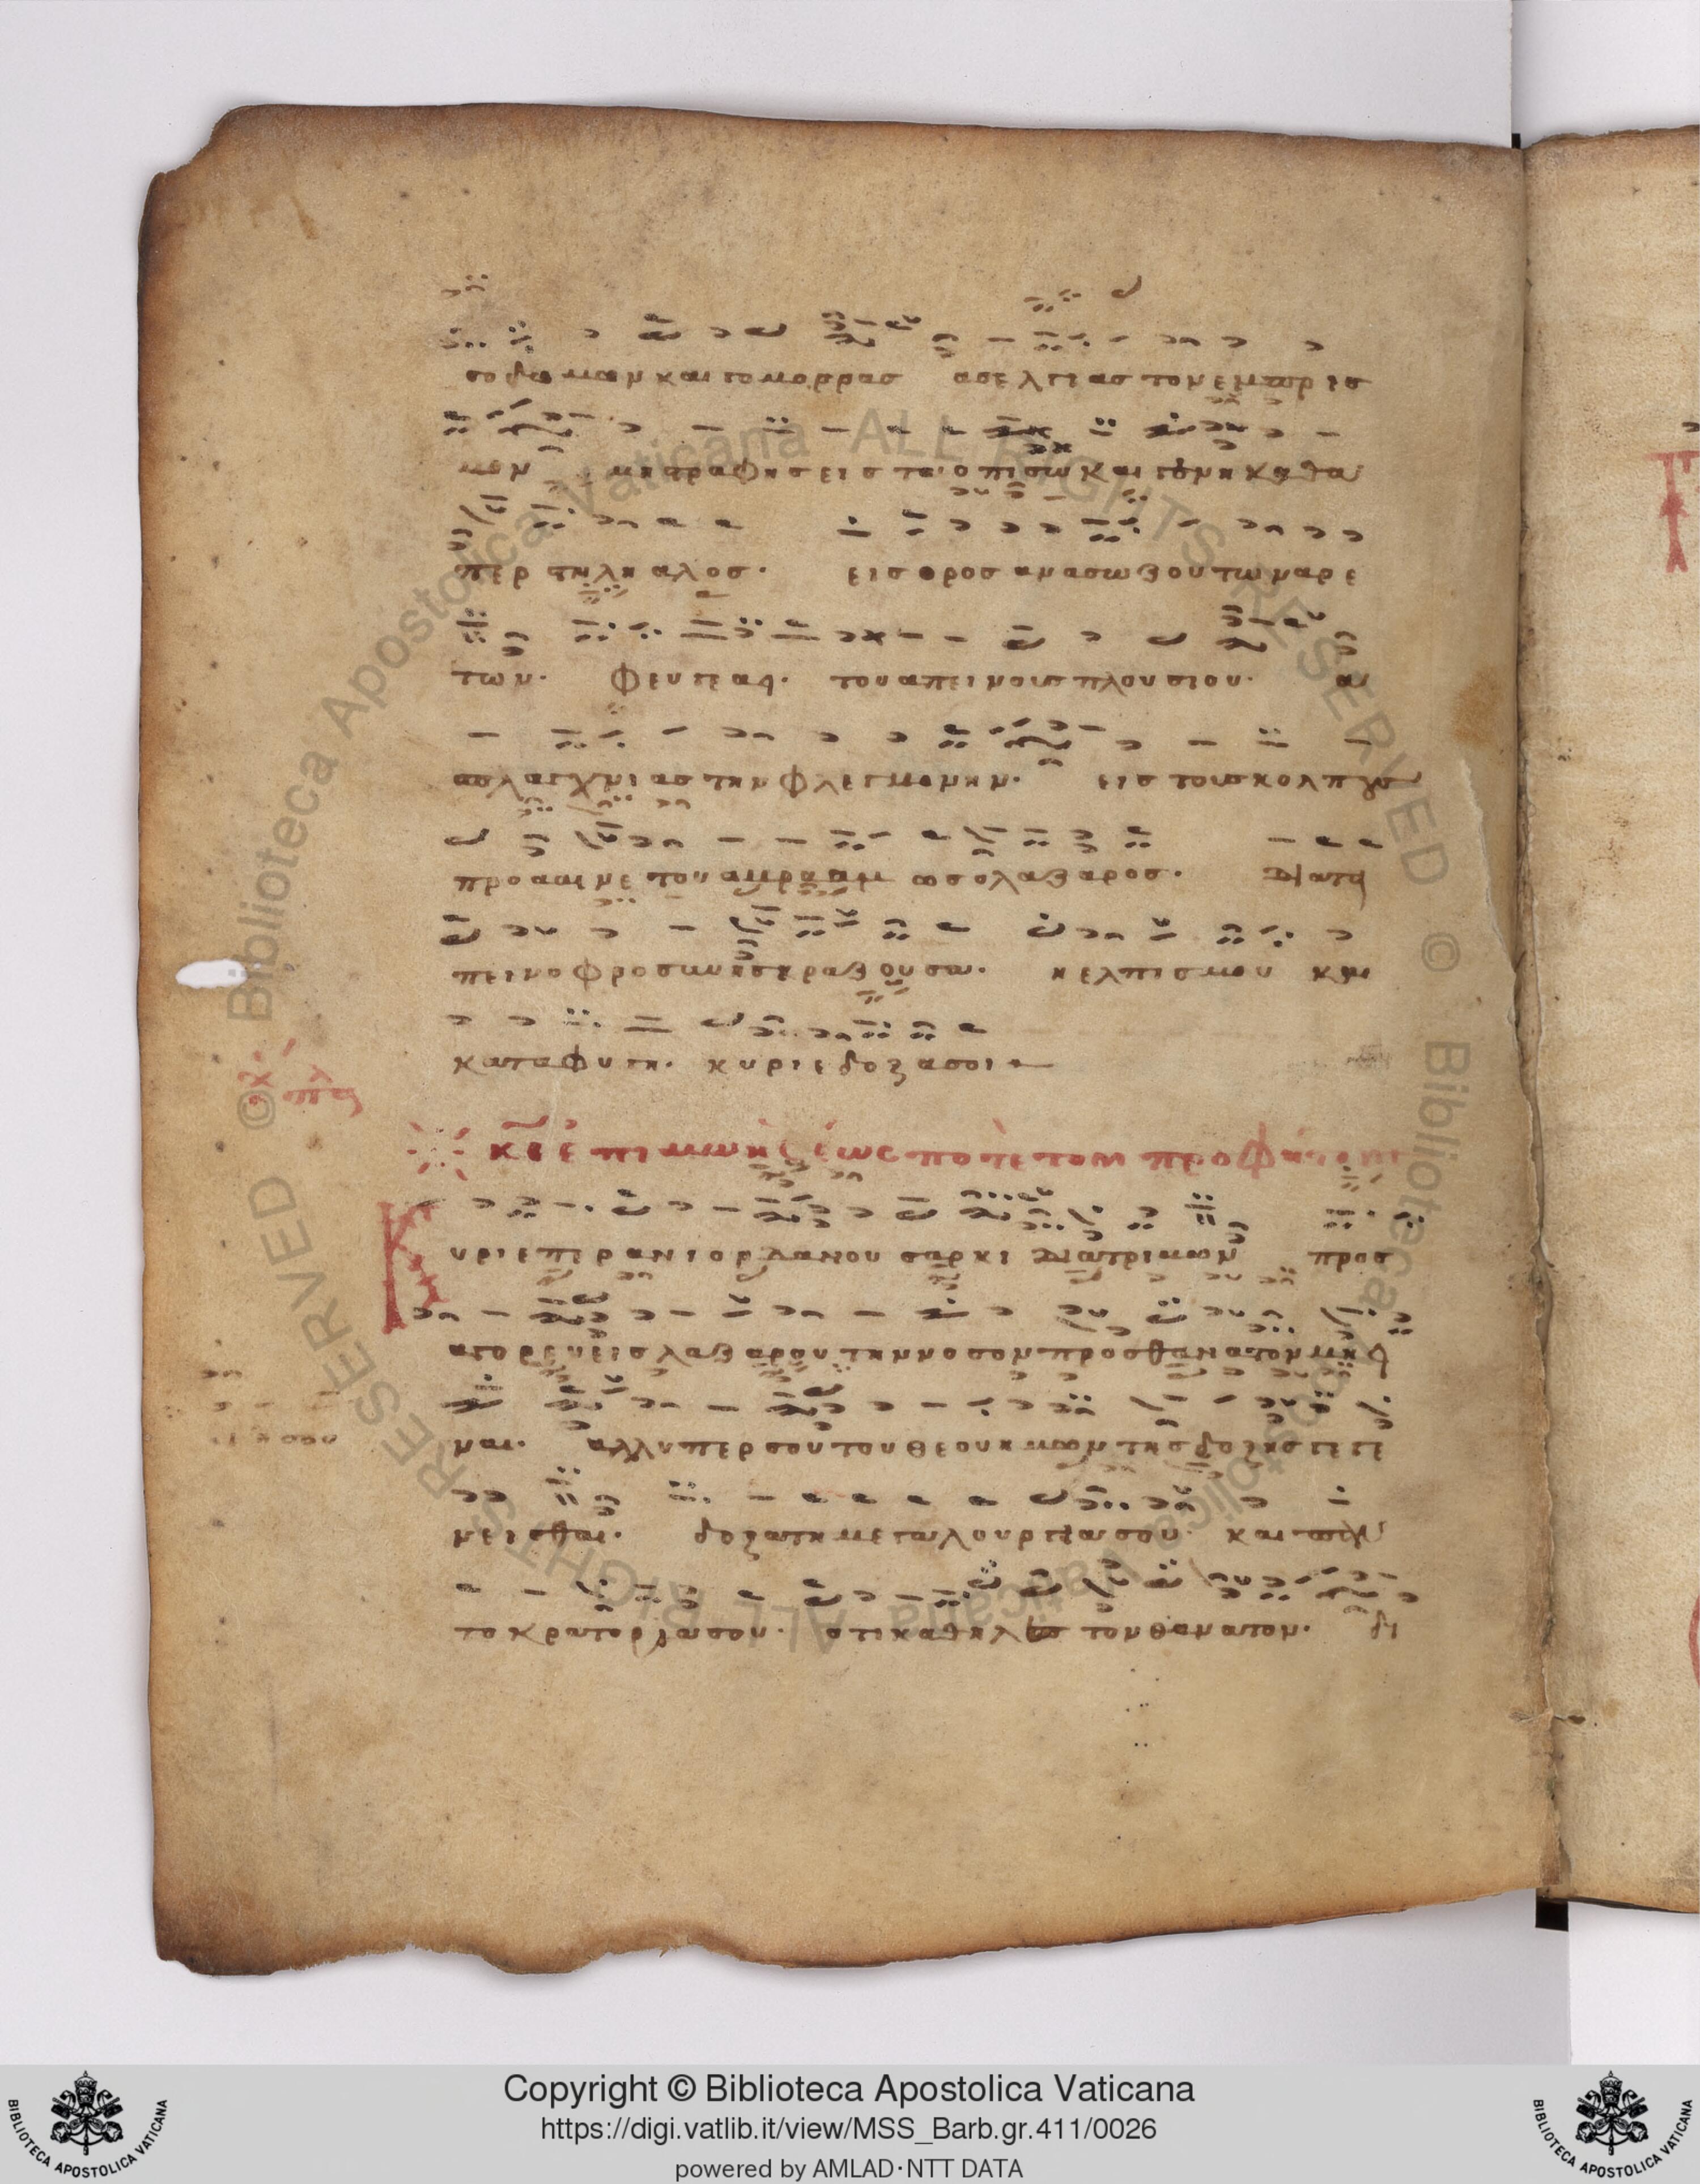 σοδομων και γομορρας ασελγιας τον εμπρισ
μον μη στραφης εις τα οπισω και συ μη καθα
περ στηλη αλος· εις ορος ανασωζου των αρε
των· φευγε ας· του απεινους πλουσιου· α
ασπλαγχνιας την φλεγμονην· εις τους κολπους
προσμενε του αβρααμ ως ο λαζαρος· δια τα
πεινοφροσυνης κραζουσα· η ελπις μου και
καταφυγη· κυριε δοξα σοι
πλ
Κε επι μνης εως ποτε των προφασεων
Κυριε περαν ιορδανου σαρκι διατριβων προσ
αγορευεις λαζαρου την νοσον προς θανατον μη
ναι· αλλ υπερ σου του θεου ημων της δοξης γεγε
νεισθαι· δοξα τη μεγαλουργια σου· και παν
το κρατορια σου· οτι καθηλες τον θανατον· δι
Copyright © Biblioteca Apostolica Vaticana
https://digi.vatlib.it/view/MSS_Barb.gr.411/0026
powered by AMLAD·NTT DATA